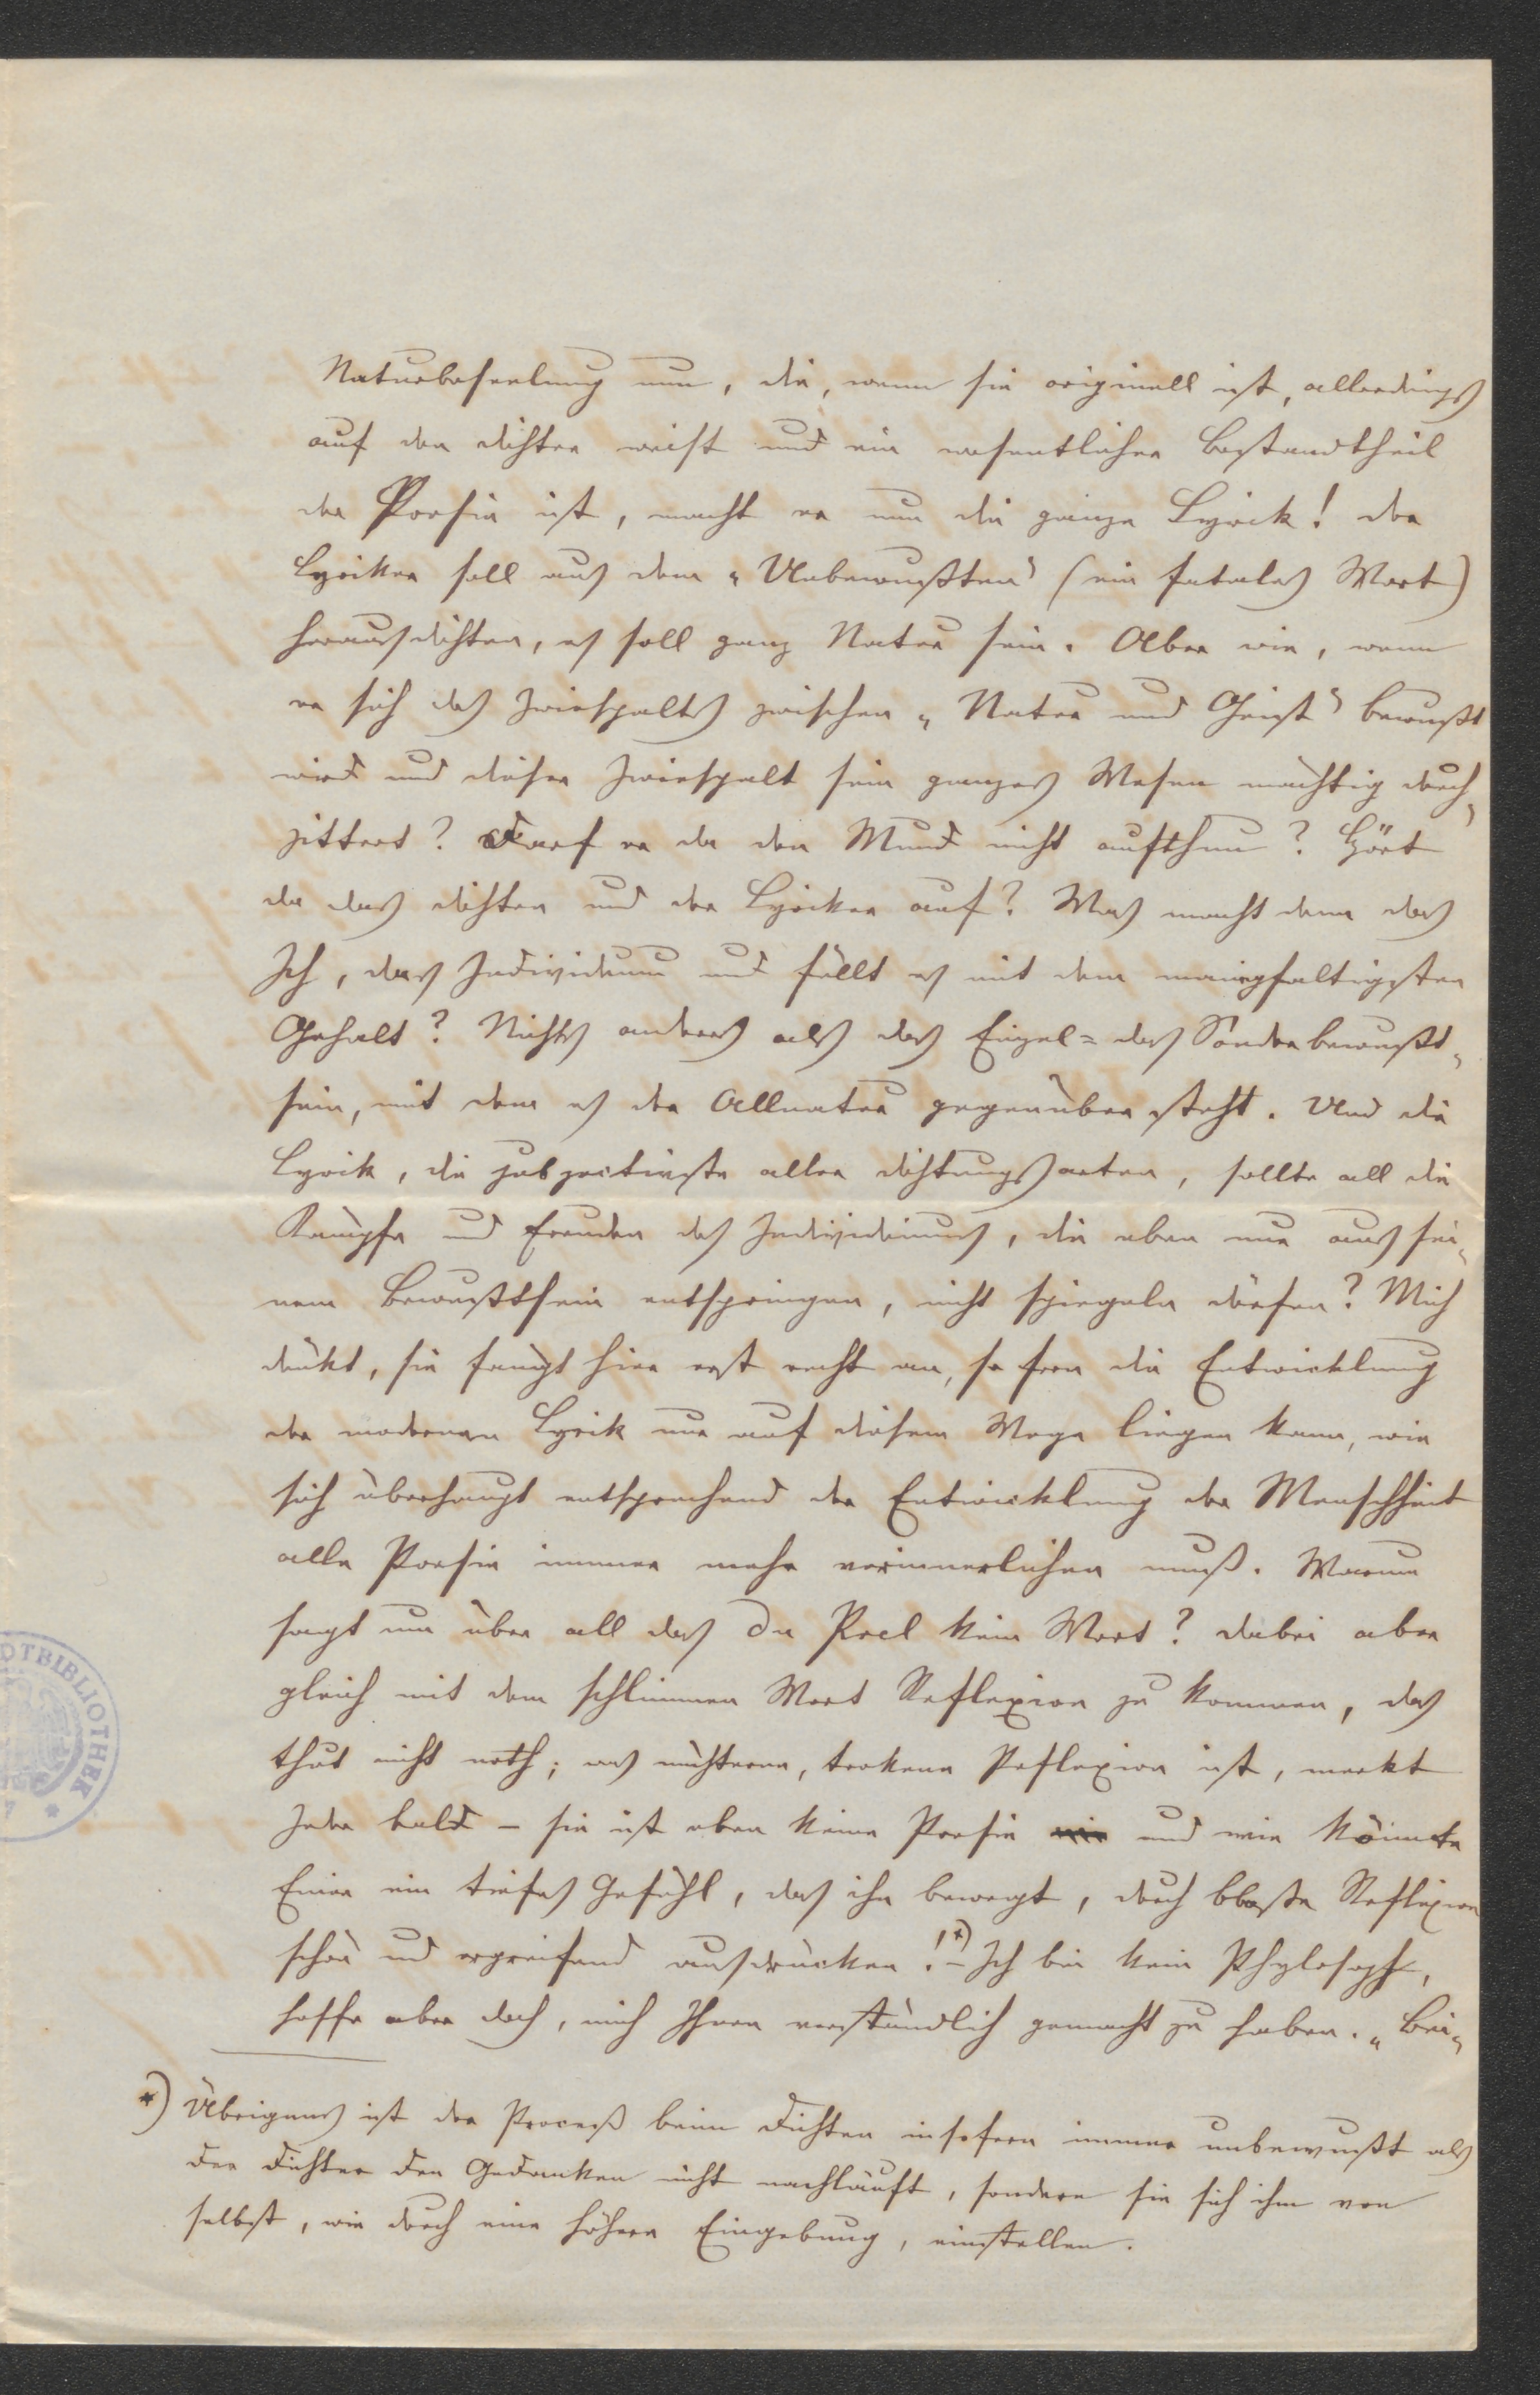 Naturbeseelung nun, die, wenn sie originell ist, allerdings
auf den Dichter weist und ein wesentlicher Bestandtheil
der Poesie ist, macht er nun die ganze Lyrick! Der
Lyriker soll aus dem „Unbewußten“ (ein fatales Wort)
herausdichten, es soll ganz Natur sein. Aber wie, wenn
er sich des Zwiespaltes zwischen „Natur und Geist“ bewußt
wird und dieser Zwiespalt sein ganzes Wesen mächtig durch-
zittert? Darf er da den Mund nicht aufthun? Hört
da das Dichten und der Lyriker auf? Was macht denn das
Ich, das Individuum und füllt es mit dem manigfaltigsten
Gehalt? Nichts anders als das Einzel= das Sonderbewußt-
sein, mit dem es der Allnatur gegenüber steht. Und die
Lyrik, die subjectivste aller Dichtungsarten, sollte all die
Kämpfe und Freuden des Individuums, die eben nur aus sei-
nem Bewußtsein entspringen, nicht spiegeln dürfen? Mich
dünkt, sie fängt hier erst recht an, so fern die Entwicklung
der modernen Lyrik nur auf diesem Wege liegen kann, wie
sich überhaupt entsprechend der Entwicklung der Menschheit
alle Poesie immer mehr verinnerlichen muß. Warum
sagt nun über all das Du Prel kein Wort? Dabei aber
gleich mit dem schlimmen Wort Reflexion zu kommen, das
thut nicht noth; was nüchterne, trokene Reflexion ist, merkt
Jeder bald – sie ist eben keine Poesie und wie könnte
Einer ein tiefes Gefühl, das ihn bewegt, durch bloße Reflexion
schön und ergreifend ausdrücken!*) – Ich bin kein Phylosoph,
hoffe aber doch, mich Ihnen verständlich gemacht zu haben. „Bei-
*) Übrigens ist der Proceß beim Dichten insofern immer unbewußt als
der Dichter den Gedanken nicht nachläuft, sondern sie sich ihm von
selbst, wie durch eine höhere Eingebung, einstellen.
DTBIBLIOTHEK